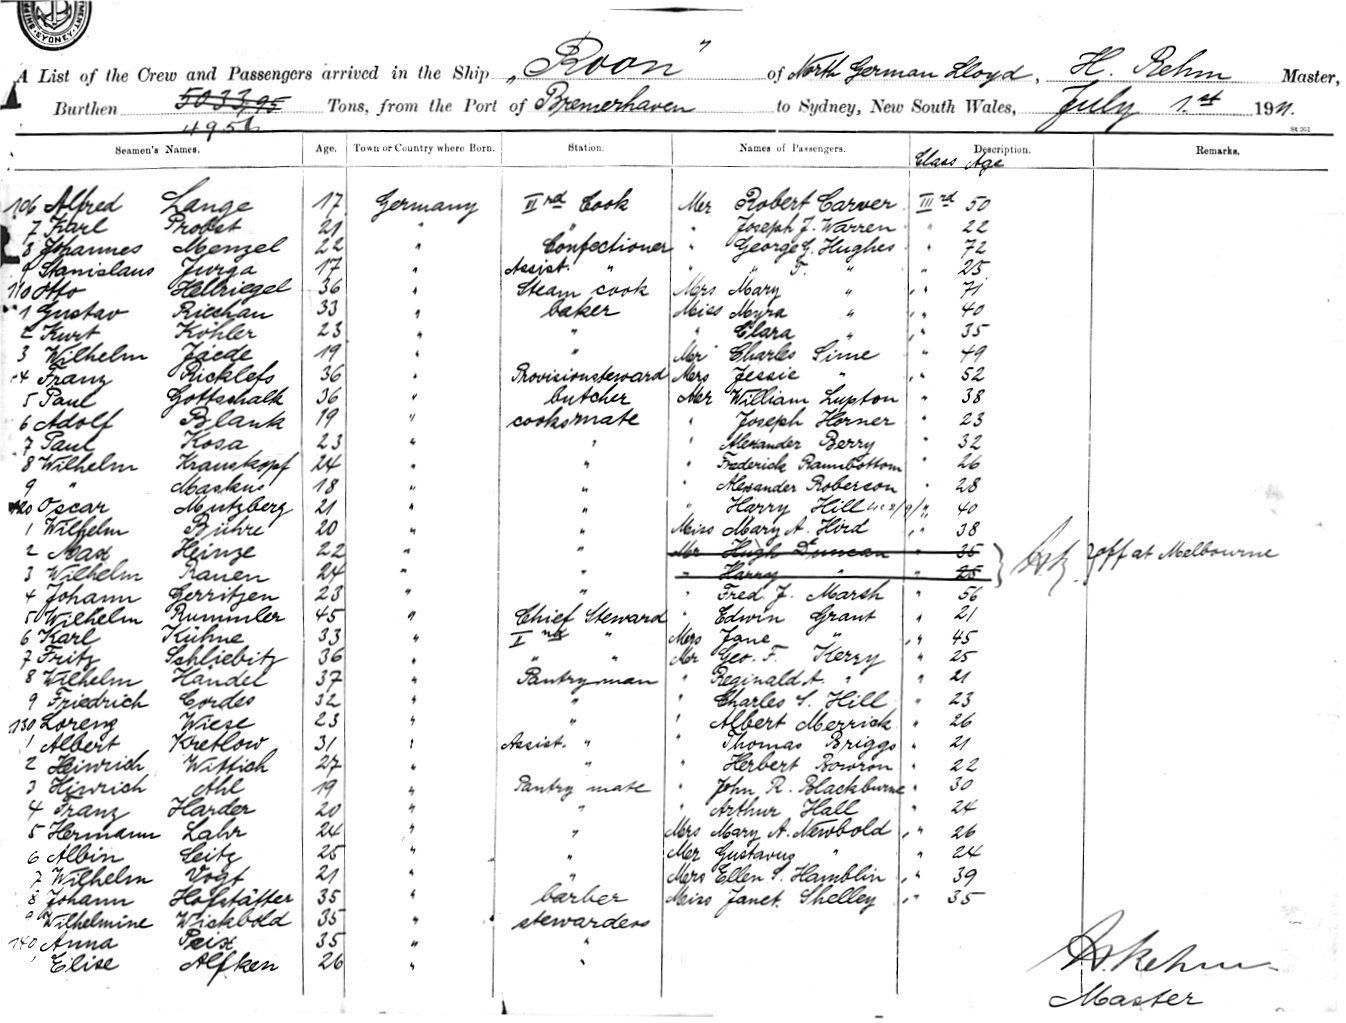 SYDNEY
A List of the Crew and Passengers arrived in the Ship „Roon" of North German Lloyd, H. Rehm Master,
Burthen 5033,95 Tons, from the Port of Bremerhaven to Sydney, New South Wales, July 1.st 1911.
4956
St 261
Seamen's Names. Age. Town or Country where Born. Station. Names of Passengers. Description. Remarks.
Class Age
106 Alfred Lange 17 Germany IIrd Cook Mr Robert Carver IIIrd 50
7 Karl Probst 21 " " " Joseph J. Warren " 22
8 Johannes Menzel 22 " Confectioner " George G. Hughes " 72
9 Stanislaus Jurga 17 " Assist. " " " F. " " 25
110 Otto Hellriegel 36 " Steam cook Mrs Mary " " 71
1 Gustav Riechau 33 " baker Miss Myra " " 40
2 Kurt Köhler 23 " " " Clara " " 35
3 Wilhelm Jaede 19 " " Mr Charles Sime " 49
4 Franz Ricklefs 36 " Provisionsteward Mrs Jessie " " 52
5 Paul Gottschalk 36 " butcher Mr William Lupton " 38
6 Adolf Blank 19 " cooksmate " Joseph Horner " 23
7 Paul Kosa 23 " " " Alexander Berry " 32
8 Wilhelm Krauskopf 24 " " " Frederick Ramnbottom " 26
9 " Maskus 18 " " " Alexander Roberson " 28
120 Oscar Mutzberg 21 " " " Harry Hill " 40
1 Wilhelm Bühre 20 " " Miss Mary A. Hird " 38
2 Max Heinze 22 " " Mr Hugh Duncan " 35
3 Wilhelm Rauen 24 " " " Harry " " 25 off at Melbourne
4 Johann Gerritzen 23 " " " Fred J. Marsh " 56
5 Wilhelm Rummler 45 " Chief Steward " Edwin Grant " 21
6 Karl Kühne 33 " II nd " Mrs Jane " " 45
7 Fritz Schliebitz 36 " " " Mr Geo. F. Kerry " 25
8 Wilhelm Händel 37 " Pantryman " Reginald A. " " 21
9 Friedrich Cordes 32 " " " Charles S. Hill " 23
130 Lorenz Wiese 23 " " " Albert Merrick " 26
1 Albert Kretlow 31 " Assist. " " Thomas Briggs " 21
2 Heinrich Wittich 27 " " " Herbert Bowron " 22
3 Hinrich Ahl 19 " Pantry mate " John R. Blackburne " 30
4 Franz Harder 20 " " " Arthur Hall " 24
5 Hermann Lahr 24 " " Mrs Mary A. Newbold " 26
6 Albin Seitz 25 " " Mr Gustavus " " 24
7 Wilhelm Vogt 21 " " Mrs Ellen S. Hamblin " 39
8 Johann Hofstätter 35 " barber Miss Janet Shelley " 35
9 Wilhelmine Wickbold 35 " stewardess
140 Anna Peix 35 " "
1 Elise Alfken 26 " "
H. Rehm
Master